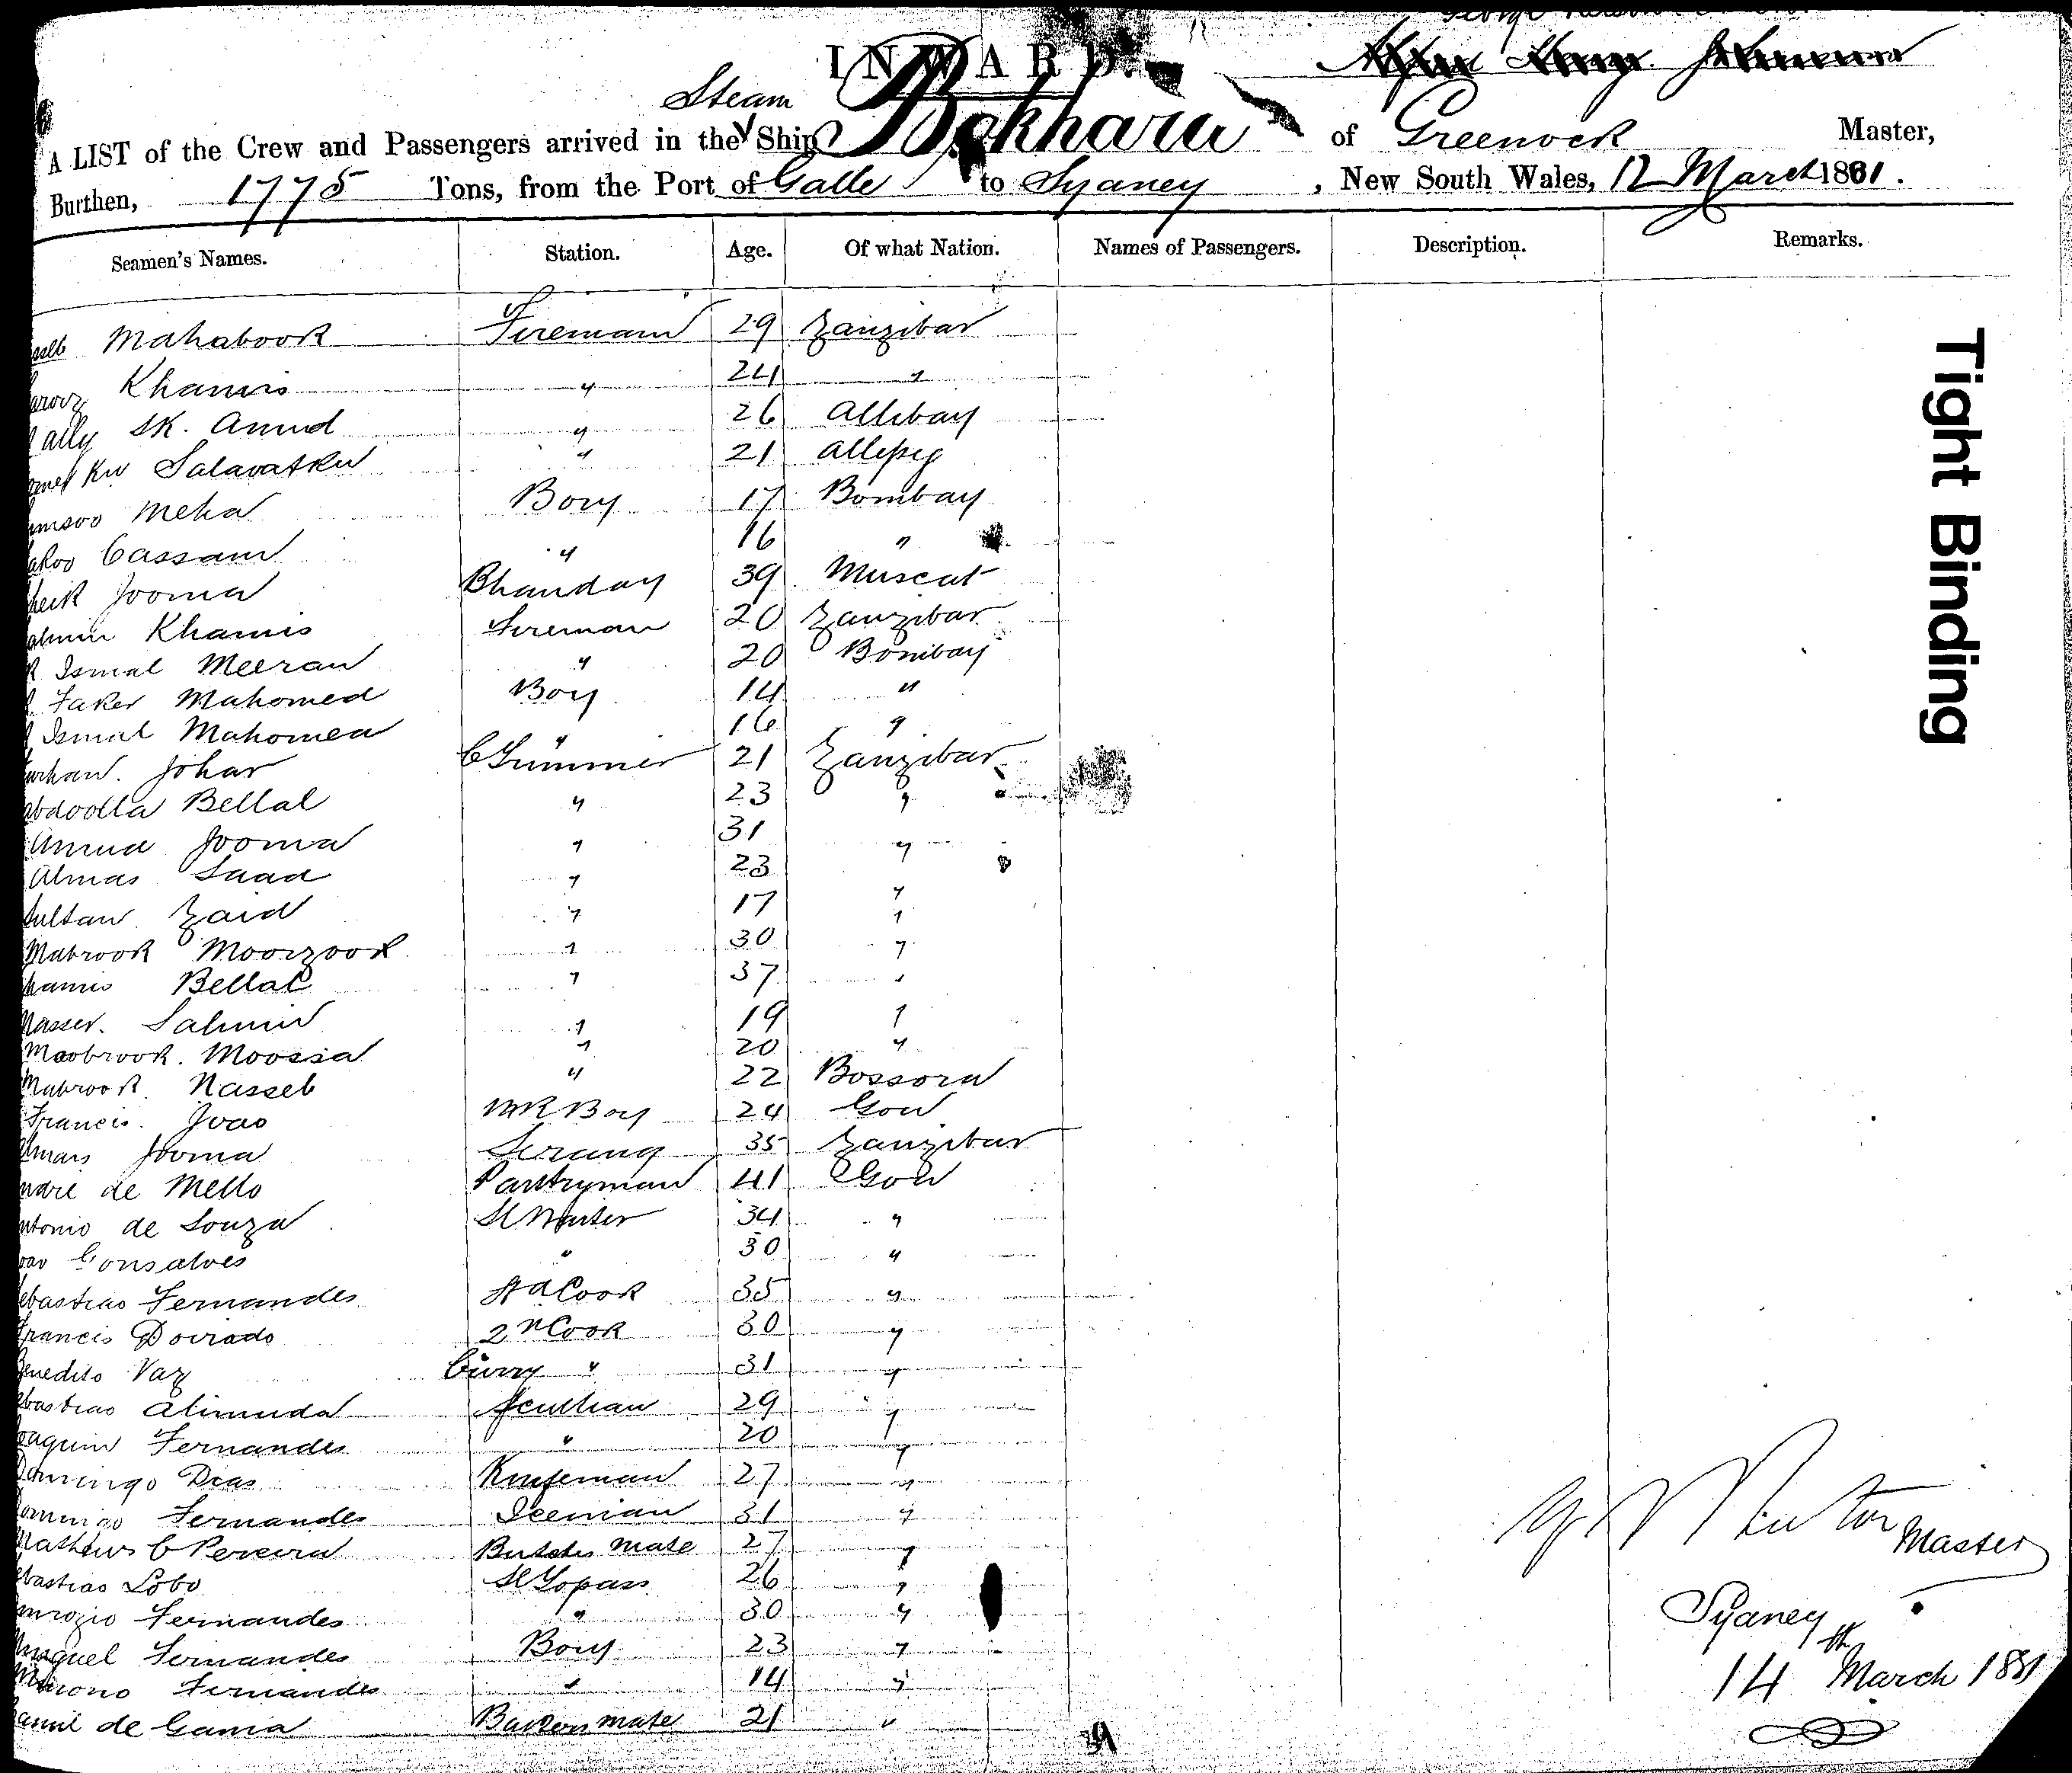 INWARD.
Steam
A LIST of the Crew and Passengers arrived in the Ship Bokhara of Greenock Master,
Burthen, 1775 Tons, from the Port of Galle to Sydney, New South Wales, 12 March 1881.
Seamen's Names. Station. Age. Of what Nation. Names of Passengers. Description. Remarks.
Mahabook Fireman 29 Zanzibar
Khamis " 24 "
ally SK. Amud " 26 Allibay
Salavatku " 21 Allepey
Meha Boy 17 Bombay
Cassam " 16 "
Jooma Bhanday 39 Muscat
Khamis Fireman 20 Zanzibar
Ismal Meeran " 20 Bombay
Faker Mahomed Boy 14 "
Ismal Mahomed " 16 "
Johar C Trimmer 21 Zanzibar
abdoolla Bellal " 23 "
Jooma " 31 "
Almas Saad " 23 "
Sultan Zaid " 17 "
Mabrook Moorzook " 30 "
Khamis Bellal " 37 "
Nasser. Salmin " 19 "
Maobrook. Moossa " 20 "
Mabrook. Nasseb " 22 Bossora
Francis. Joao Boy 24 Goa
Almas Jooma Serang 35 Zanzibar
Andre de Mello Pantryman 41 Goa
Antonio de Souza 34 "
Joao Gonsalves " 30 "
Sebastiao Fernandes Cook 35 "
Francis Dovrado 2n Cook 30 "
Benedito Vaz Curry " 31 "
Sebastiao Alimuda Scullian 29 "
Joaquim Fernandes " 20 "
Domingo Dias Knifeman 27 "
Domingo Fernandes Iceman 31 "
Mathews C Pereira Butchs mate 27 "
Sebastiao Lobo St Topass 26 "
Fernandes " 30 "
Miguel Fernandes Boy 23 "
Fernandes " 14 "
de Gama Bakers mate 21 "
Master
Sydney
14th March 1881
39
Tight Binding